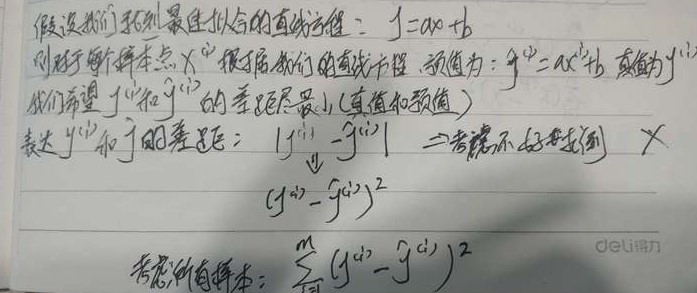 假设我们找到最佳拟合的直线方程: y=ax+b
则对于每个样本点 x⁽ⁱ⁾ 根据我们的直线方程, 预值为: ŷ⁽ⁱ⁾=ax⁽ⁱ⁾+b 真值为y⁽ⁱ⁾
我们希望 y⁽ⁱ⁾和ŷ⁽ⁱ⁾的差距尽量小(真值和预值)
表达 y⁽ⁱ⁾和ŷ的差距: |y⁽ⁱ⁾-ŷ⁽ⁱ⁾| ⇒考虑不好求倒 ×
⇓
(y⁽ⁱ⁾-ŷ⁽ⁱ⁾)²
deli得力
考虑所有样本: Σᵢ₌₁ᵐ (y⁽ⁱ⁾-ŷ⁽ⁱ⁾)²